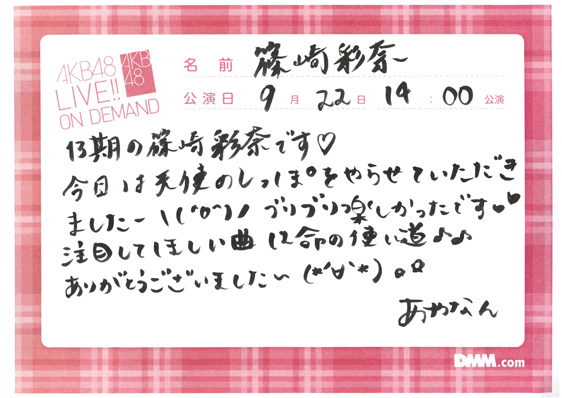 AKB48
LIVE!!
ON DEMAND
AKB
48
名前 篠崎彩奈
公演日 9月22日 14:00公演
13期の篠崎彩奈です♡
今日は天使のしっぽをやらせていただき
ました〜\(^o^)/ ブリブリ楽しかったです♥♥
注目してほしい曲は命の使い道♪♪
ありがとうございました〜 (*'∀'*)。✿
あやなん
DMM.com